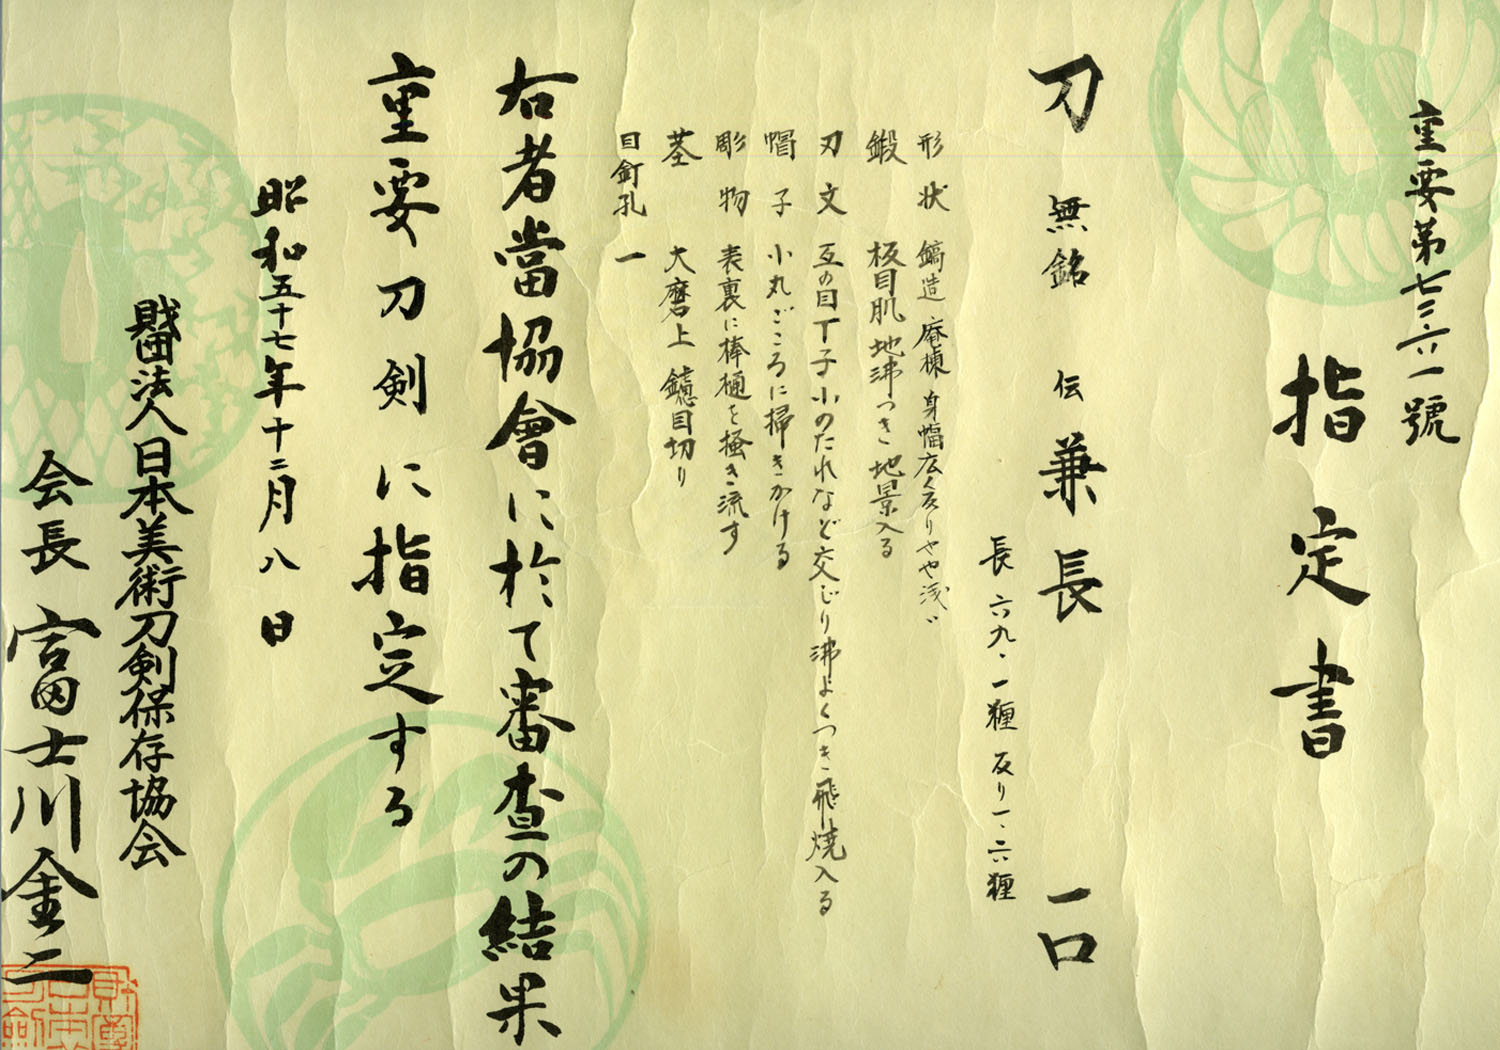 重要第七三六一號
指定書
刀 無銘 伝 兼長 一口
長 六九・一糎 反り一・六糎
形状 鎬造 庵棟 身幅広く反りやや浅い
鍛 板目肌 地沸つき 地景入る
刃文 互の目丁子小のたれなど交じり沸よくつき飛焼入る
帽子 小丸ごころに掃きかける
彫物 表裏に棒樋を掻き流す
茎 大磨上 鑢目切り
目釘孔 一
右者當協會に於て審査の結果
重要刀剣に指定する
昭和五十七年十二月八日
財団法人日本美術刀剣保存協会
会長 富士川金二